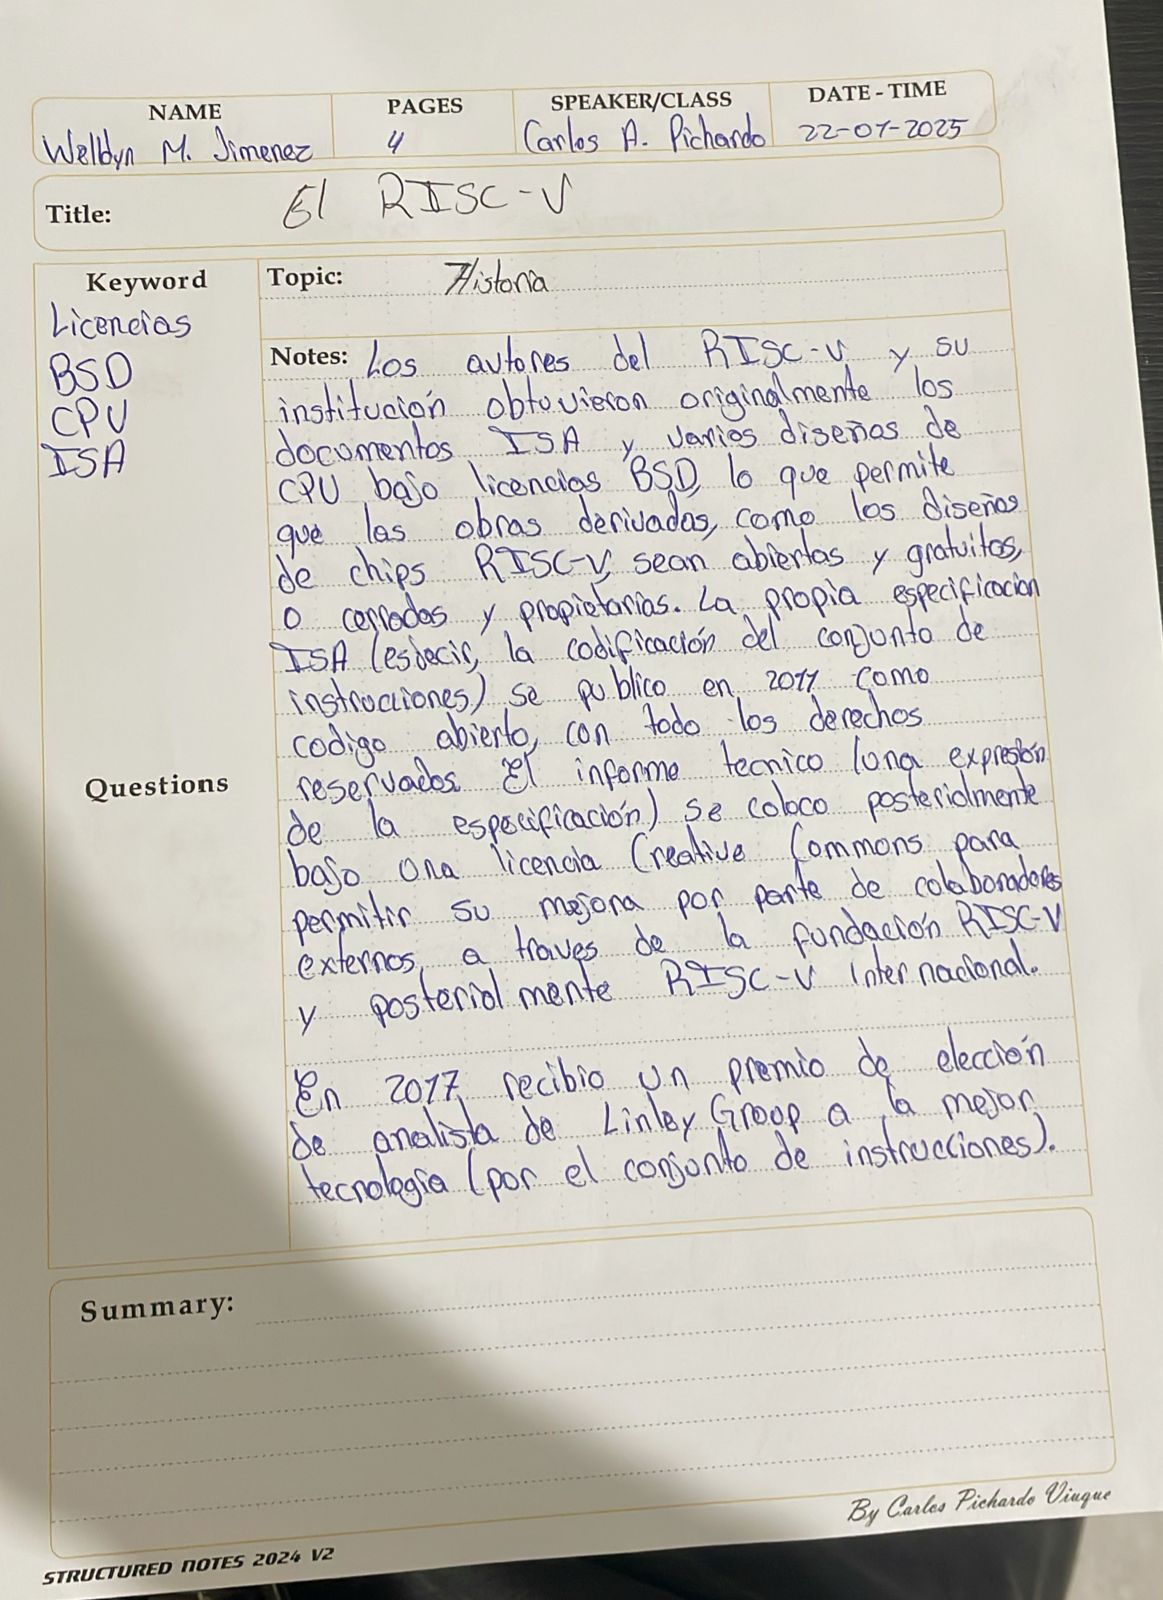 NAME PAGES SPEAKER/CLASS DATE - TIME
Welbyn M. Jimenez 4 Carlos A. Pichardo 22-01-2025
Title: El RISC-V
Keyword
Licencias
BSD
CPU
ISA
Questions
Topic: Historia
Notes: Los autores del RISC-V y su
institución obtuvieron originalmente los
documentos ISA y varios diseños de
CPU bajo licencias BSD, lo que permite
que las obras derivadas, como los diseños
de chips RISC-V, sean abiertas y gratuitos,
o cerradas y propietarias. La propia especificación
ISA (es decir, la codificación del conjunto de
instrucciones) se publico en 2011 como
codigo abierto, con todo los derechos
reservados. El informe tecnico (una expresión
de la especificación) se coloco posterialmente
bajo una licencia Creative Commons para
permitir su mejora por parte de colaboradores
externos, a traves de la fundación RISC-V
y posterial mente RISC-V Internacional.
En 2017, recibio un premio de elección
de analista de Linley Group a la mejor
tecnologia (por el conjunto de instrucciones).
Summary:
By Carlos Pichardo Viuque
STRUCTURED NOTES 2024 V2